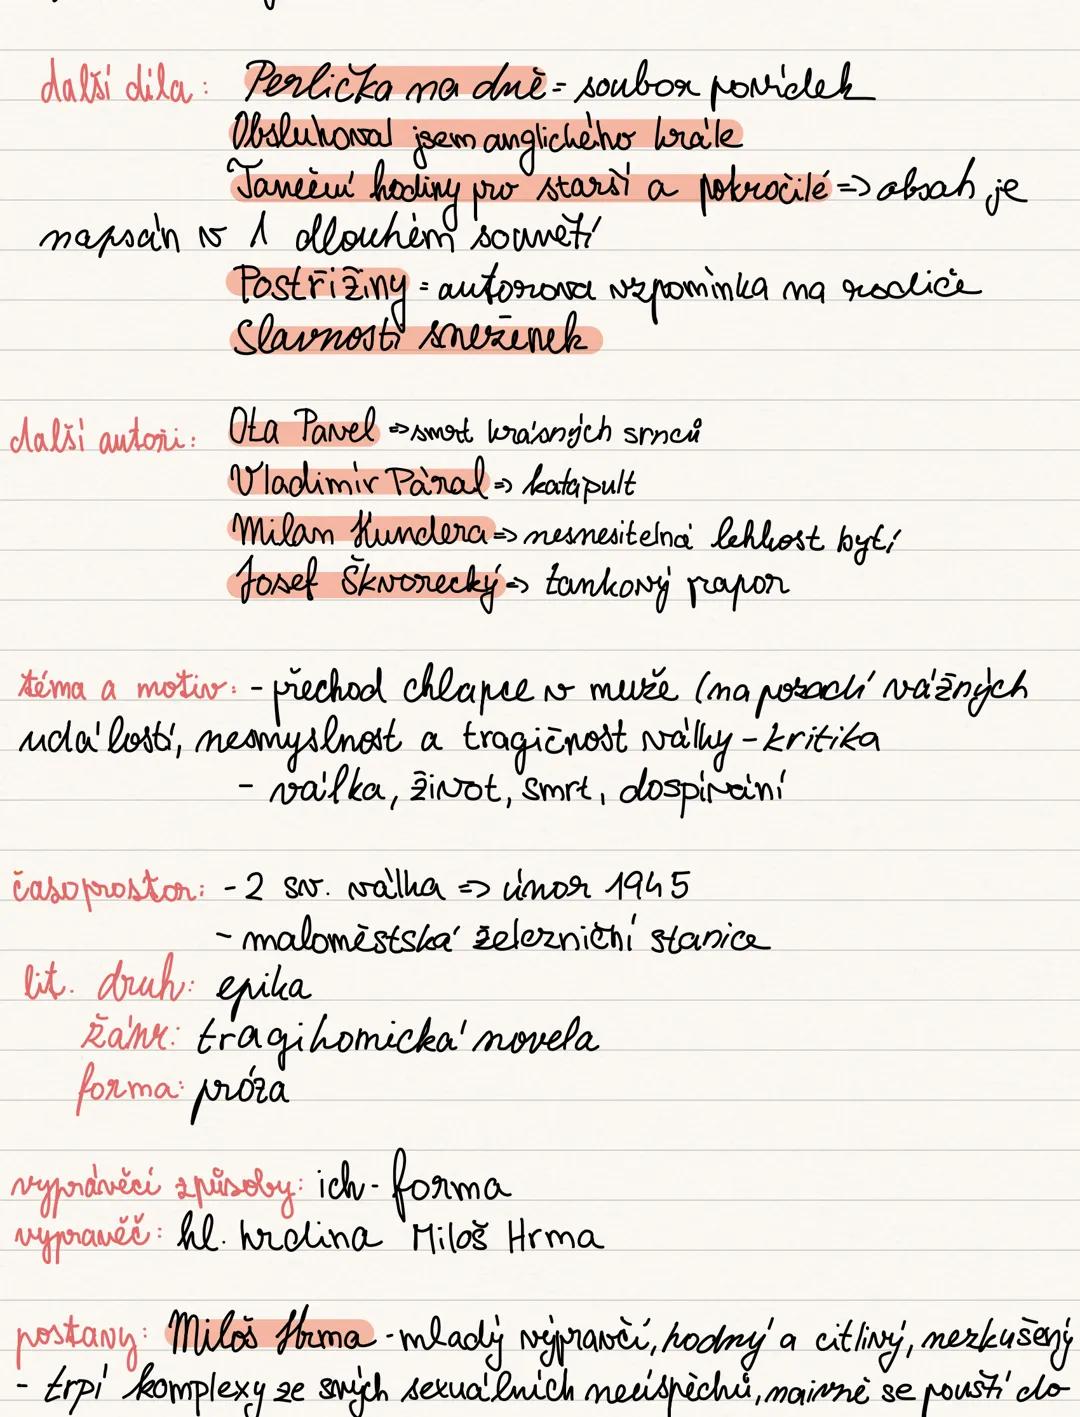 další díla: Perlička na dně = soubor povídek
Obsluhoval jsem anglického krále
Taneční hodiny pro starší a pokročilé => obsah je
napsán v 1 dlouhém souvětí
Postřižiny = autorova vzpomínka na rodiče
Slavnosti sněženek
další autoři: Ota Pavel => smrt krásných srnců
Vladimír Páral => katapult
Milan Kundera => nesnesitelná lehkost bytí
Josef Škvorecký => tankový prapor
téma a motiv: - přechod chlapce v muže (na pozadí vážných
událostí, nesmyslnost a tragičnost války - kritika
- válka, život, smrt, dospívání
časoprostor: - 2 sv. válka => únor 1945
- maloměstská železniční stanice
lit. druh: epika
žánr: tragikomická novela
forma: próza
vyprávěcí způsoby: ich-forma
vypravěč: hl. hrdina Miloš Hrma
postavy: Miloš Hrma - mladý výpravčí, hodný a citlivý, nezkušený
- trpí komplexy ze svých sexuálních neúspěchů, naivně se pouští do